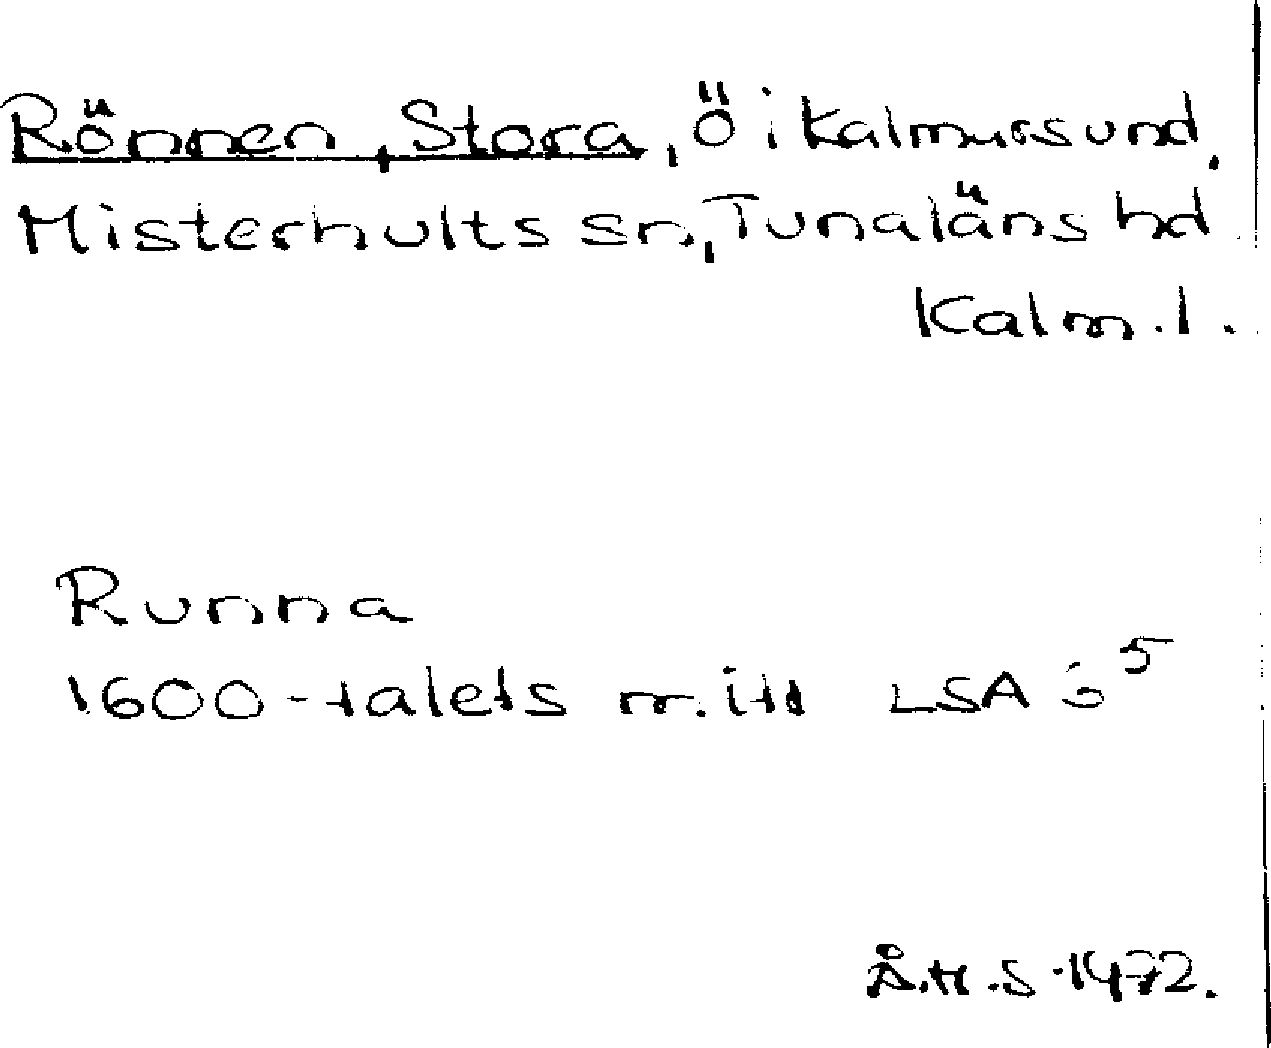 Rönnen, Stora, Ö i Kalmarsund,
Misterhults sn, Tunaläns hd
Kalm. l.
Runna
1600-talets mitt LSA ö 5
Å.H.S. 1972.